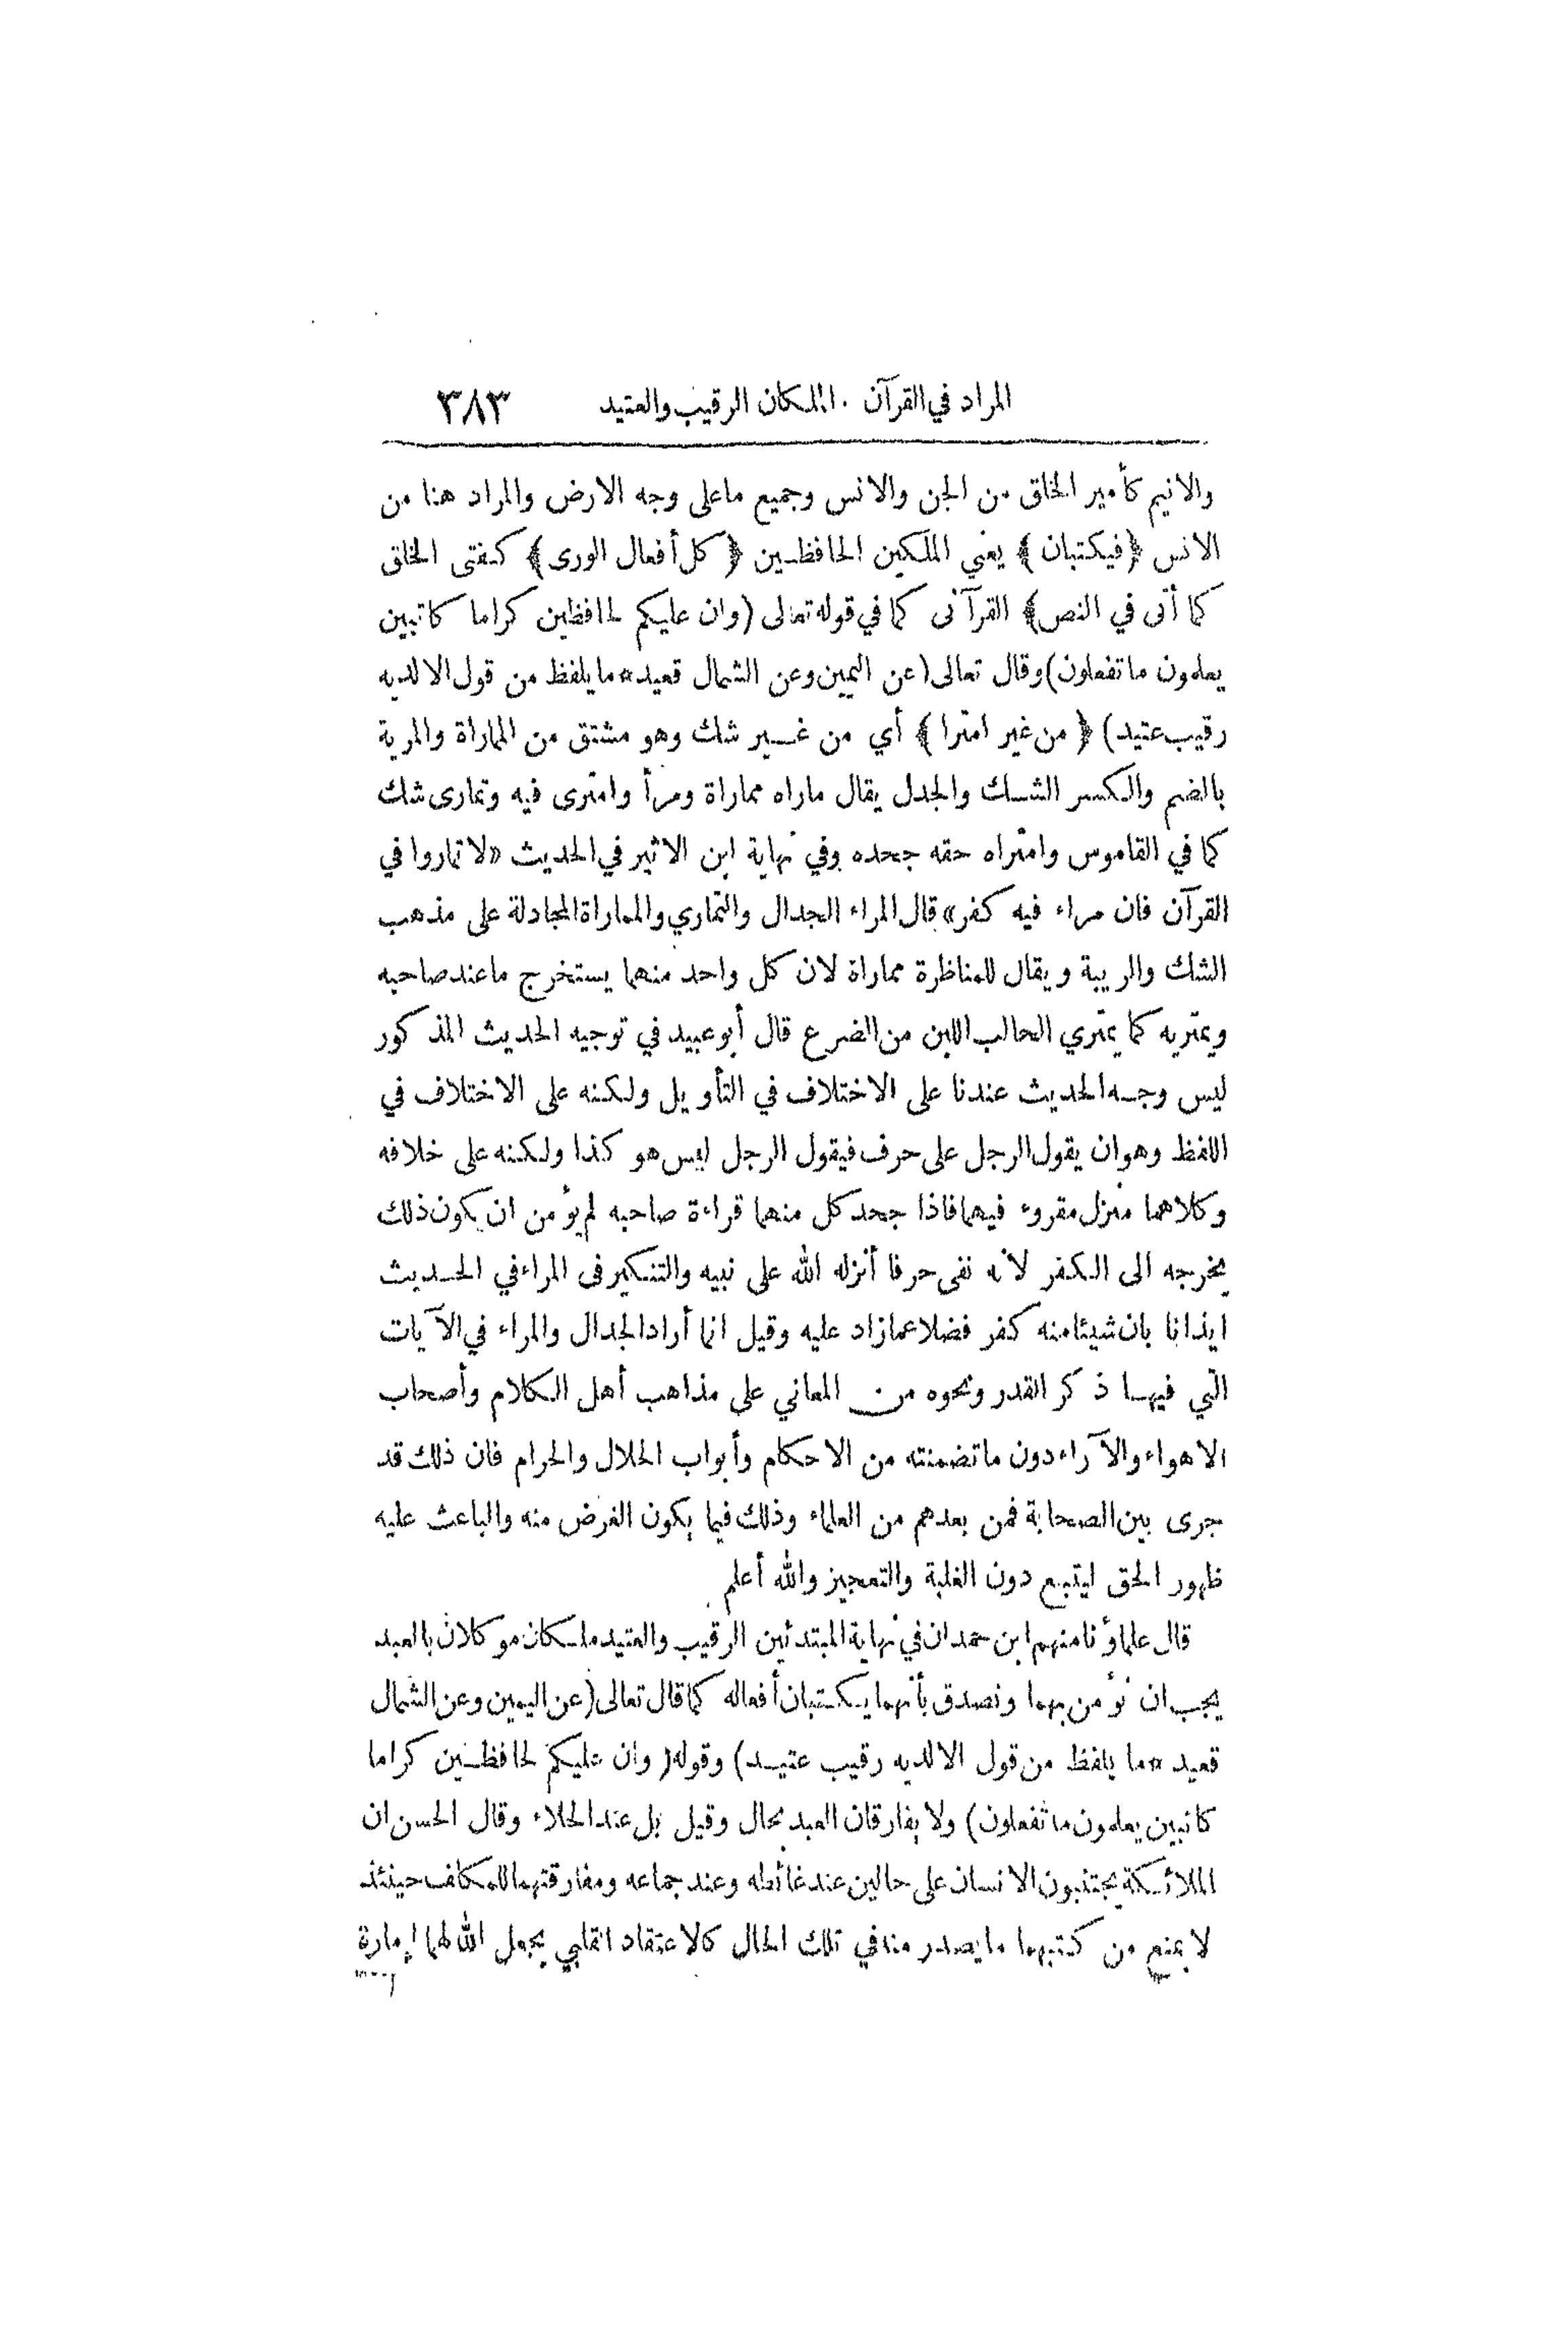 المراد في القرآن . الملكان الرقيب والعتيد ٣٨٣
والانيم كأمير الخلق من الجن والانس وجميع ماعلى وجه الارض والمراد هنا من
الانس ﴿فيكتبان﴾ يعني الملكين الحافظين ﴿كل أفعال الورى﴾ كفتى الخلق
كما أتى في النص﴾ القرآنى كما في قوله تعالى (وان عليكم لحافظين كراما كاتبين
يعلمون ماتفعلون) وقال تعالى (عن اليمين وعن الشمال قعيد * مايلفظ من قول الا لديه
رقيب عتيد) ﴿من غير امترا﴾ أي من غير شك وهو مشتق من المماراة والمرية
بالضم والكسر الشك والجدل يقال ماراه مماراة ومرأ وامترى فيه وتمارى شك
كما في القاموس وامتراه حقه جحده وفي نهاية ابن الاثير في الحديث «لا تماروا في
القرآن فان مراء فيه كفر» قال المراء الجدال والتماري والمماراة المجادلة على مذهب
الشك والريبة ويقال للمناظرة مماراة لان كل واحد منهما يستخرج ماعند صاحبه
ويمتريه كما يمتري الحالب اللبن من الضرع قال أبو عبيد في توجيه الحديث المذكور
ليس وجه الحديث عندنا على الاختلاف في التأويل ولكنه على الاختلاف في
اللفظ وهو ان يقول الرجل على حرف فيقول الرجل ليس هو كذا ولكنه على خلافه
وكلاهما منزل مقروء فيهما فاذا جحد كل منهما قراءة صاحبه لم يؤمن ان يكون ذلك
يخرجه الى الكفر لانه نفى حرفا أنزله الله على نبيه والتنكير في المراء في الحديث
ايذانا بان شيئا منه كفر فضلا عما زاد عليه وقيل انما أراد الجدال والمراء في الآيات
التي فيها ذكر القدر ونحوه من المعاني على مذاهب أهل الكلام وأصحاب
الاهواء والآراء دون ماتضمنته من الاحكام وأبواب الحلال والحرام فان ذلك قد
جرى بين الصحابة فمن بعدهم من العلماء وذلك فيما يكون الغرض منه والباعث عليه
ظهور الحق ليتبع دون الغلبة والتعجيز والله أعلم
قال علماؤنا منهم ابن حمدان في نهاية المبتدئين الرقيب والعتيد ملكان موكلان بالعبد
يجب ان نؤمن بهما ونصدق بأنهما يكتبان أفعاله كما قال تعالى (عن اليمين وعن الشمال
قعيد * ما يلفظ من قول الا لديه رقيب عتيد) وقوله (وان عليكم لحافظين كراما
كاتبين يعلمون ما تفعلون) ولا يفارقان العبد بحال وقيل بل عند الخلاء وقال الحسن ان
الملائكة يجتنبون الانسان على حالين عند غائطه وعند جماعه ومفارقتهما للمكلف حينئذ
لا يمنع من كتبهما ما يصدر منه في تلك الحال كالاعتقاد القلبي يجعل الله لهما امارة